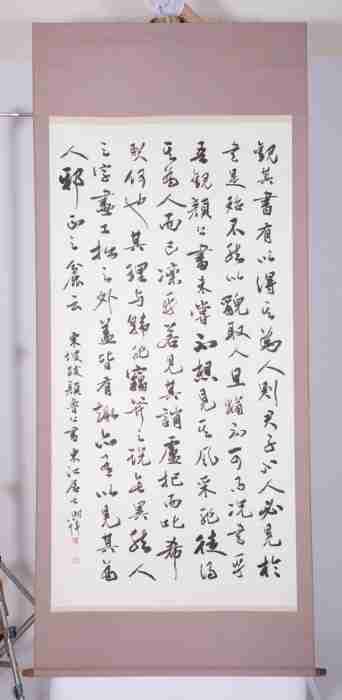 觀其書有以得其為人則君子小人必見於
書是殆不然以貌取人且猶不可而況書乎
吾觀顏公書未嘗不想見其風采非徒得
其為人而已凜乎若見其誚盧杞而叱希
烈何也其理與韓非竊斧之說無異然人
之字畫工拙之外蓋皆有趣亦有以見其為
人邪正之麤云
東坡跋顏魯公書 江居士